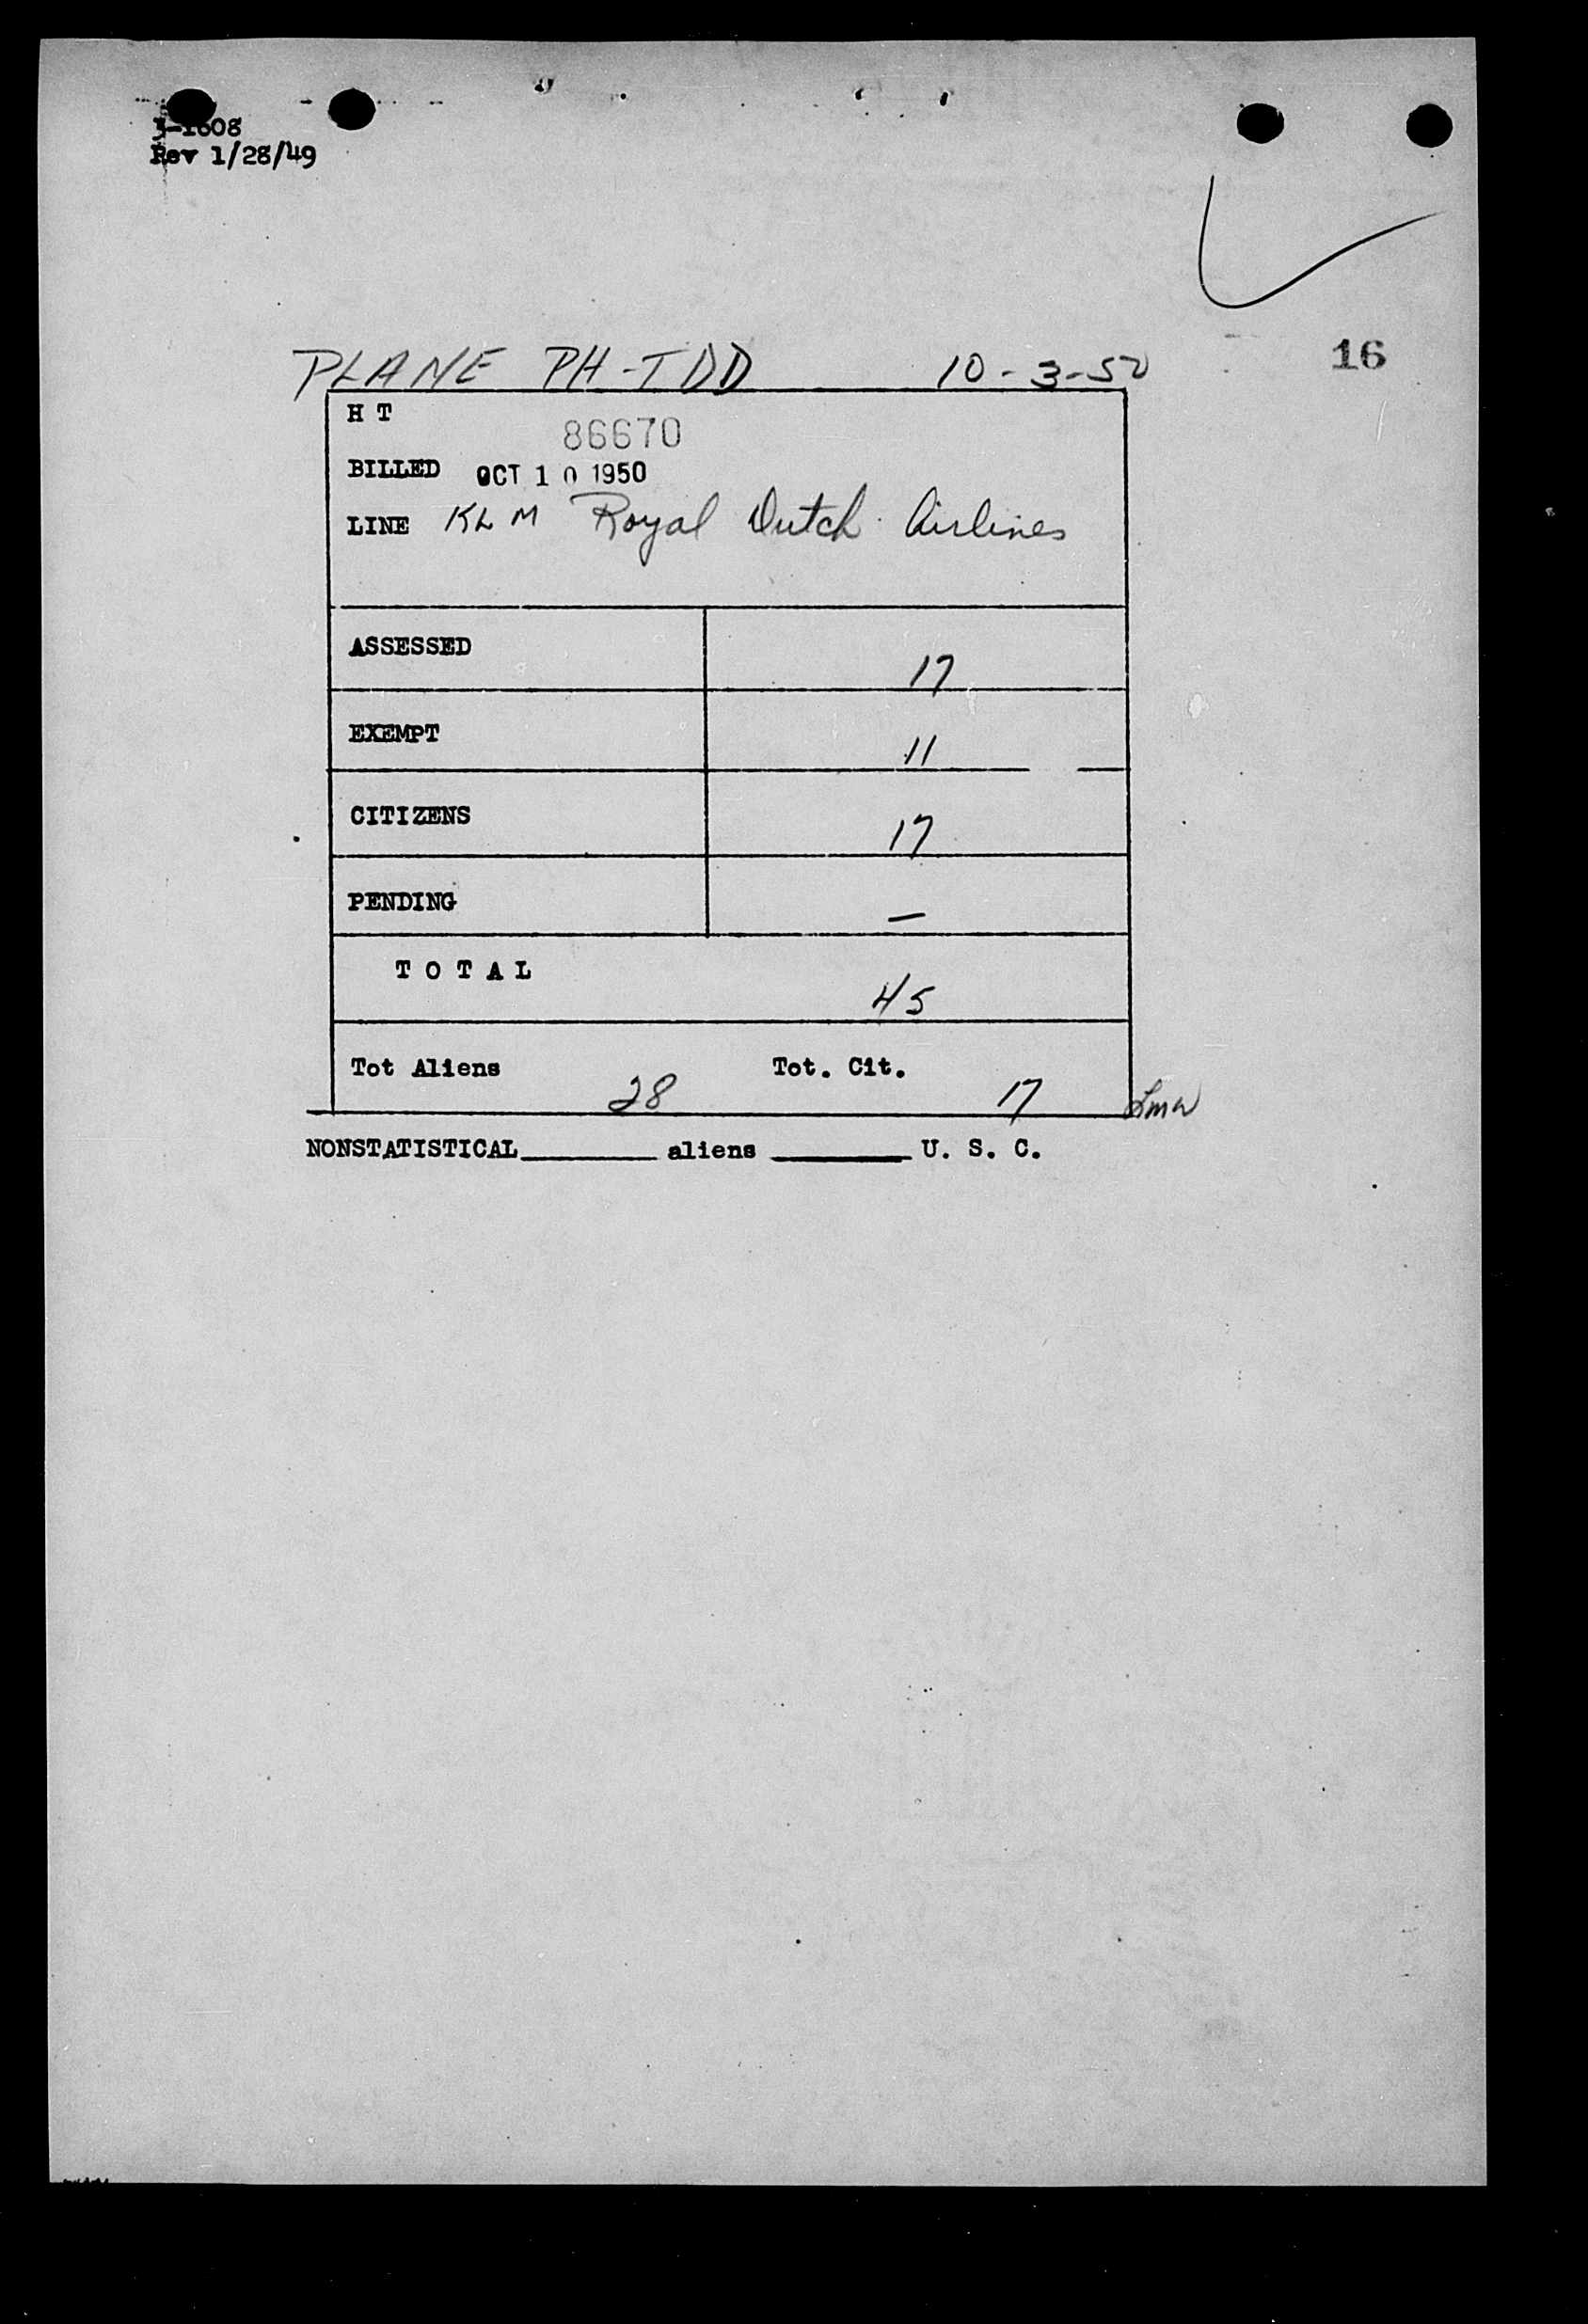 3-1608
Rev 1/28/49
PLANE PH-TDD 10-3-50
16
H T
86670
BILLED OCT 10 1950
LINE KLM Royal Dutch Airlines
ASSESSED 17
EXEMPT 11
CITIZENS 17
PENDING —
T O T A L 45
Tot Aliens 28 Tot. Cit. 17
NONSTATISTICAL_______ aliens _______ U. S. C.